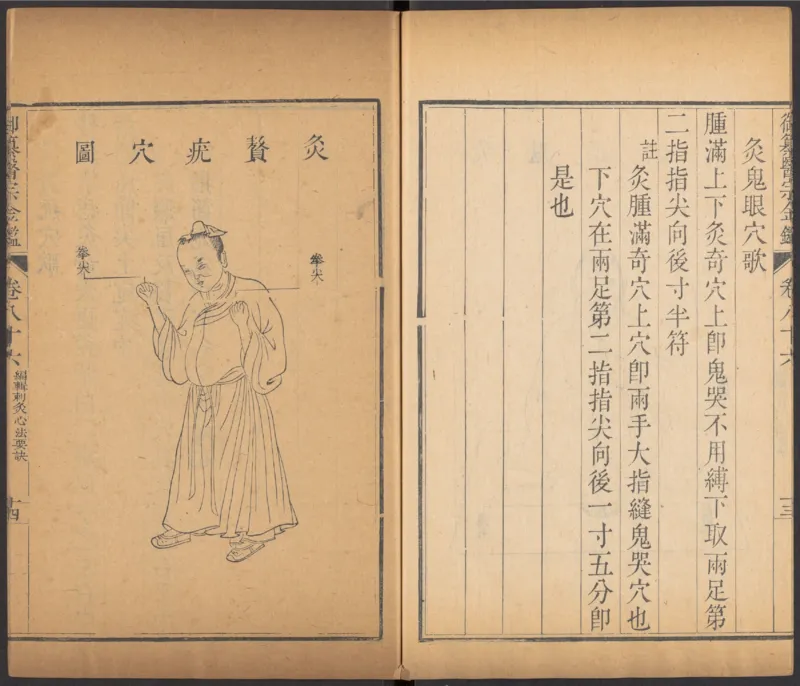 御纂醫宗金鑑
卷八十六
三
灸鬼眼穴歌
腫滿上下灸奇穴上卽鬼哭不用縛下取兩足第
二指指尖向後寸半符
註
灸腫滿奇穴上穴卽兩手大指縫鬼哭穴也
下穴在兩足第二指指尖向後一寸五分卽
是也
灸贅疣穴圖
拳尖
拳尖
御纂醫宗金鑑
卷八十六
編輯刺灸心法要訣
十四